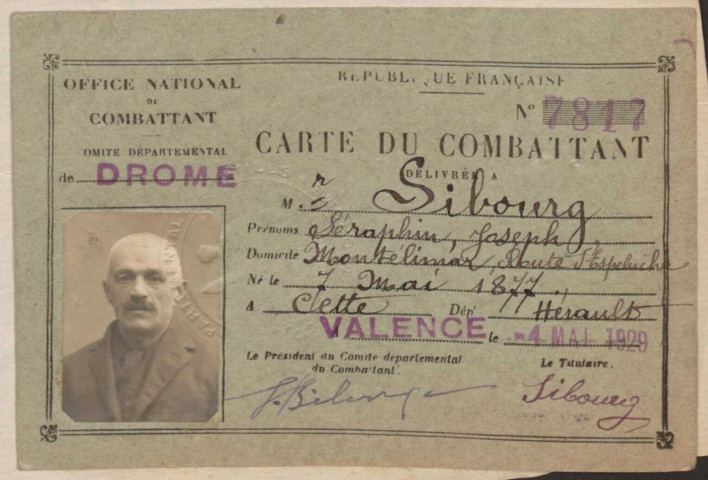 OFFICE NATIONAL
DU
COMBATTANT
OMITÉ DÉPARTEMENTAL
de DROME
RÉPUBLIQUE FRANÇAISE
N° 7817
CARTE DU COMBATTANT
DÉLIVRÉE A
M. r Sibourg
Prénoms Séraphin, Joseph
Domicile Montélimar, Route d'Espeluche
Né le 7 Mai 1877
A Cette Dépt Hérault
A VALENCE le -4 MAI 1929
Le Président du Comité départemental
du Combattant.
Le Titulaire.
Sibourg